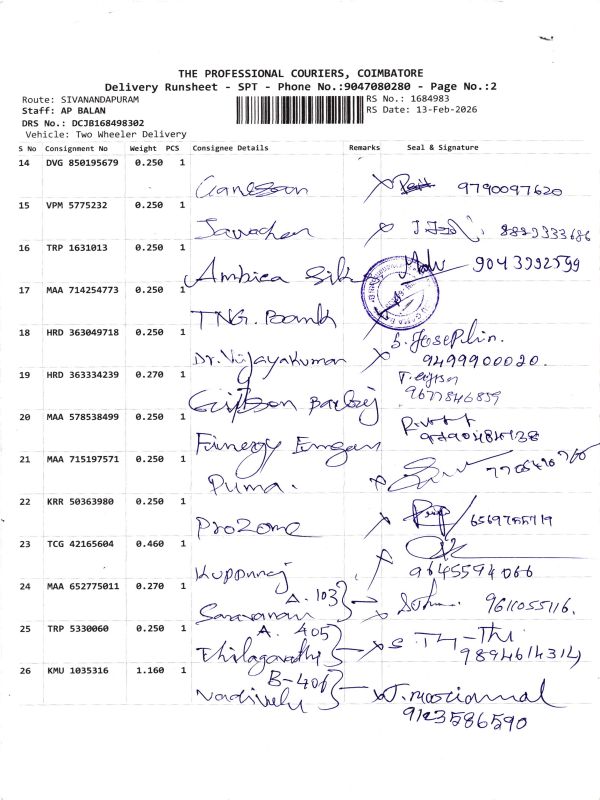 THE PROFESSIONAL COURIERS, COIMBATORE
Delivery Runsheet - SPT - Phone No.:9047080280 - Page No.:2
Route: SIVANANDAPURAM
RS No.: 1684983
Staff: AP BALAN
RS Date: 13-Feb-2026
DRS No.: DCJB168498302
Vehicle: Two Wheeler Delivery
S No Consignment No Weight PCS Consignee Details Remarks Seal & Signature
14 DVG 850195679 0.250 1
Ganesan 9790097620
15 VPM 5775232 0.250 1
16 TRP 1631013 0.250 1
Ambica Silk
17 MAA 714254773 0.250 1
TNG. Bank
18 HRD 363049718 0.250 1
S. Josephin.
Dr. Vijayakumar 9499900020.
19 HRD 363334239 0.270 1
9677846859
20 MAA 578538499 0.250 1
21 MAA 715197571 0.250 1
Puma.
22 KRR 50363980 0.250 1
Prozone
23 TCG 42165604 0.460 1
Kuppuraj 9645594066
24 MAA 652775011 0.270 1
A. 103
Saravanan 9611055116.
25 TRP 5330060 0.250 1
A. 405
Thilagavathi 9894614314
26 KMU 1035316 1.160 1
B-401
Vadivelu
9123586590